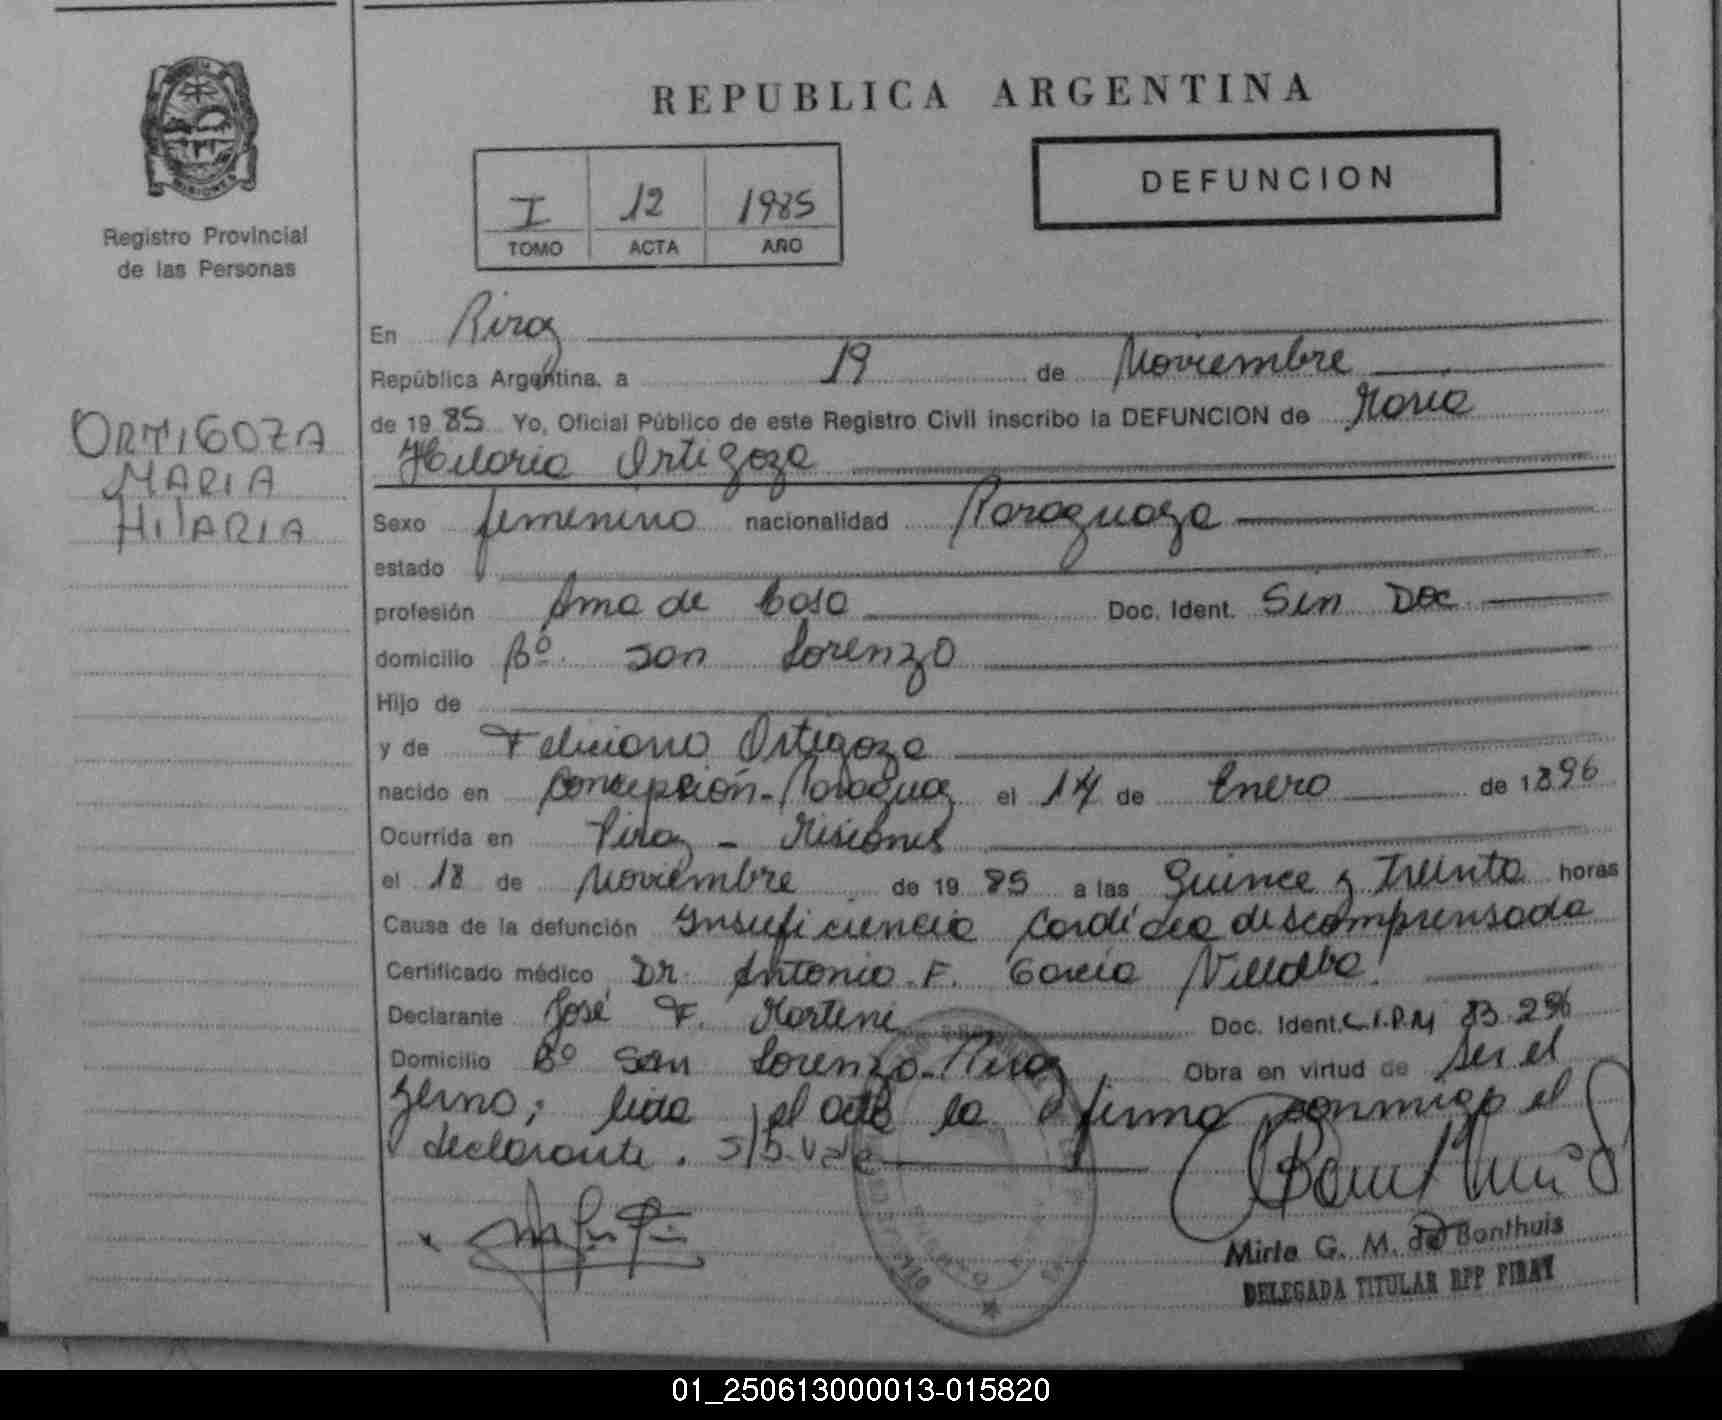 REPUBLICA ARGENTINA
DEFUNCION
MISIONES
Registro Provincial
de las Personas
I 12 1985
TOMO ACTA AÑO
ORTIGOZA
MARIA
HILARIA
En Piray
República Argentina, a 19 de Noviembre
de 1985 Yo, Oficial Público de este Registro Civil inscribo la DEFUNCION de Maria
Hilaria Ortigoza
Sexo femenino nacionalidad Paraguaya
estado
profesión Ama de Casa Doc. Ident. Sin Doc
domicilio Bº San Lorenzo
Hijo de
y de Feliciana Ortigoza
nacido en Concepción-Paraguay el 14 de Enero de 1896
Ocurrida en Piray - Misiones
el 18 de Noviembre de 1985 a las Quince y Treinta horas
Causa de la defunción Insuficiencia Cardíaca descomprensada
Certificado médico Dr. Antonio F. Garcia Villalba
Declarante José F. Martene Doc. Ident. C.I.P.M 83.296
Domicilio Bº San Lorenzo-Piray Obra en virtud de ser el
yerno; leida el acta la firma conmigo el
declarante. S/B. Vale
Mirta G. M. de Bonthuis
DELEGADA TITULAR RPP PIRAY
01_250613000013-015820